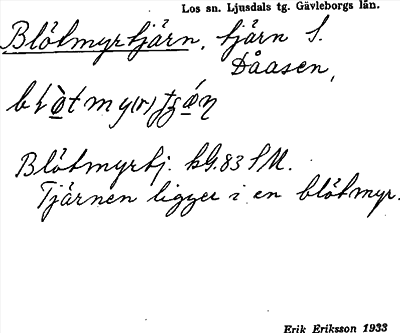 Los sn. Ljusdals tg. Gävleborgs län.
Blötmyrtjärn, tjärn S.
Dåasen,
Blötmyrtj. kG. 83 SM.
Tjärnen ligger i en blötmyr.
Erik Eriksson 1933